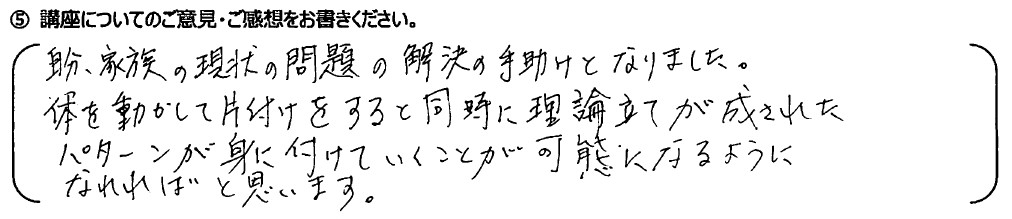 ⑤ 講座についてのご意見・ご感想をお書きください。
自分、家族の現状の問題の解決の手助けとなりました。
体を動かして片付けをすると同時に理論立てが成された
パターンが身に付けていくことが可能になるように
なれればと思います。